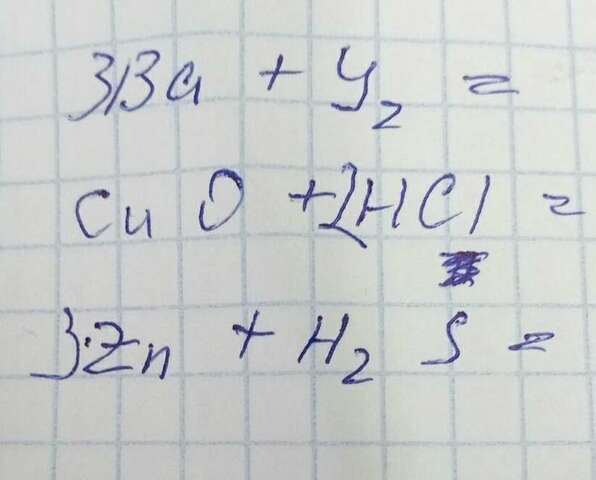 3Ba + У₂ =
CuO + 2HCl =
3·Zn + H₂ S =